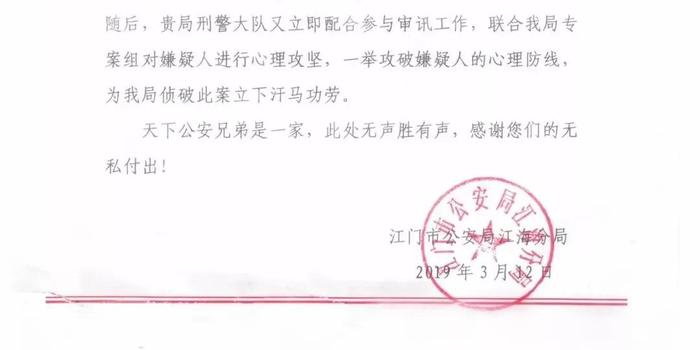 随后，贵局刑警大队又立即配合参与审讯工作，联合我局专
案组对嫌疑人进行心理攻坚，一举攻破嫌疑人的心理防线，
为我局侦破此案立下汗马功劳。
天下公安兄弟是一家，此处无声胜有声，感谢您们的无
私付出！
江门市公安局江海分局
江门市公安局江海分局
2019 年 3 月 12 日